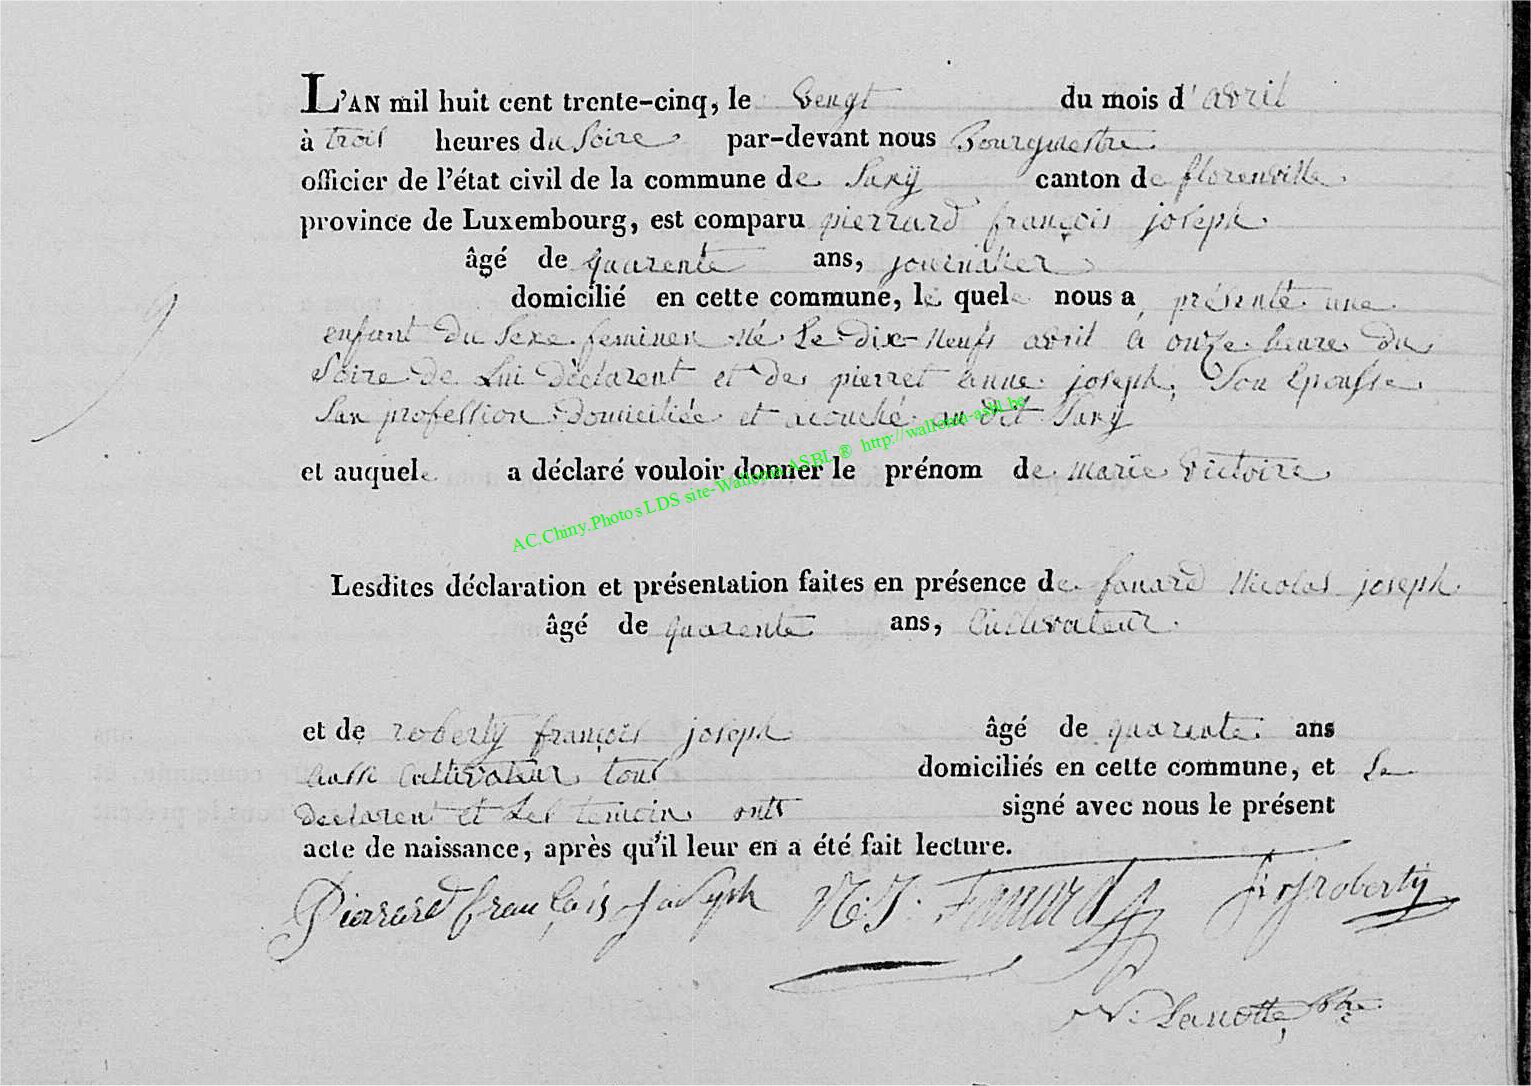 L'AN mil huit cent trente-cinq, le vengt du mois d'avril
à trois heures du Soire par-devant nous Bourgmestre
officier de l'état civil de la commune de Saxÿ canton de florenville
province de Luxembourg, est comparu pierrard françois joseph
âgé de quarente ans, journalier
domicilié en cette commune, le quel nous a présenté une
enfant du Sexe feminen né Le dix-Neufs avril a onze heure du
Soire de Lui déclarent et de pierret anne joseph, Son Epousse
San profession Domiciliée et acouché au dit Saxÿ
et auquel a déclaré vouloir donner le prénom de marie Victoire
AC.Chiny.Photos LDS site-Wallonia ASBL ® http://wallonia-asbl.be
Lesdites déclaration et présentation faites en présence de fanard Nicolas joseph
âgé de quarente ans, Cultivateur
et de roberty françois joseph âgé de quarente ans
aussi Cultivateur tous domiciliés en cette commune, et Le
declarent et Les temoin onts signé avec nous le présent
acte de naissance, après qu'il leur en a été fait lecture.
Pierrard françois Joseph N:J. Fanard roberty
N: Lanotte,